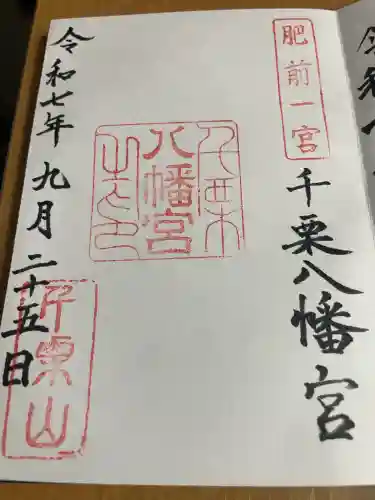 肥前一宮
千栗八幡宮
千栗
八幡宮
之印
令和七年九月二十五日
千栗山